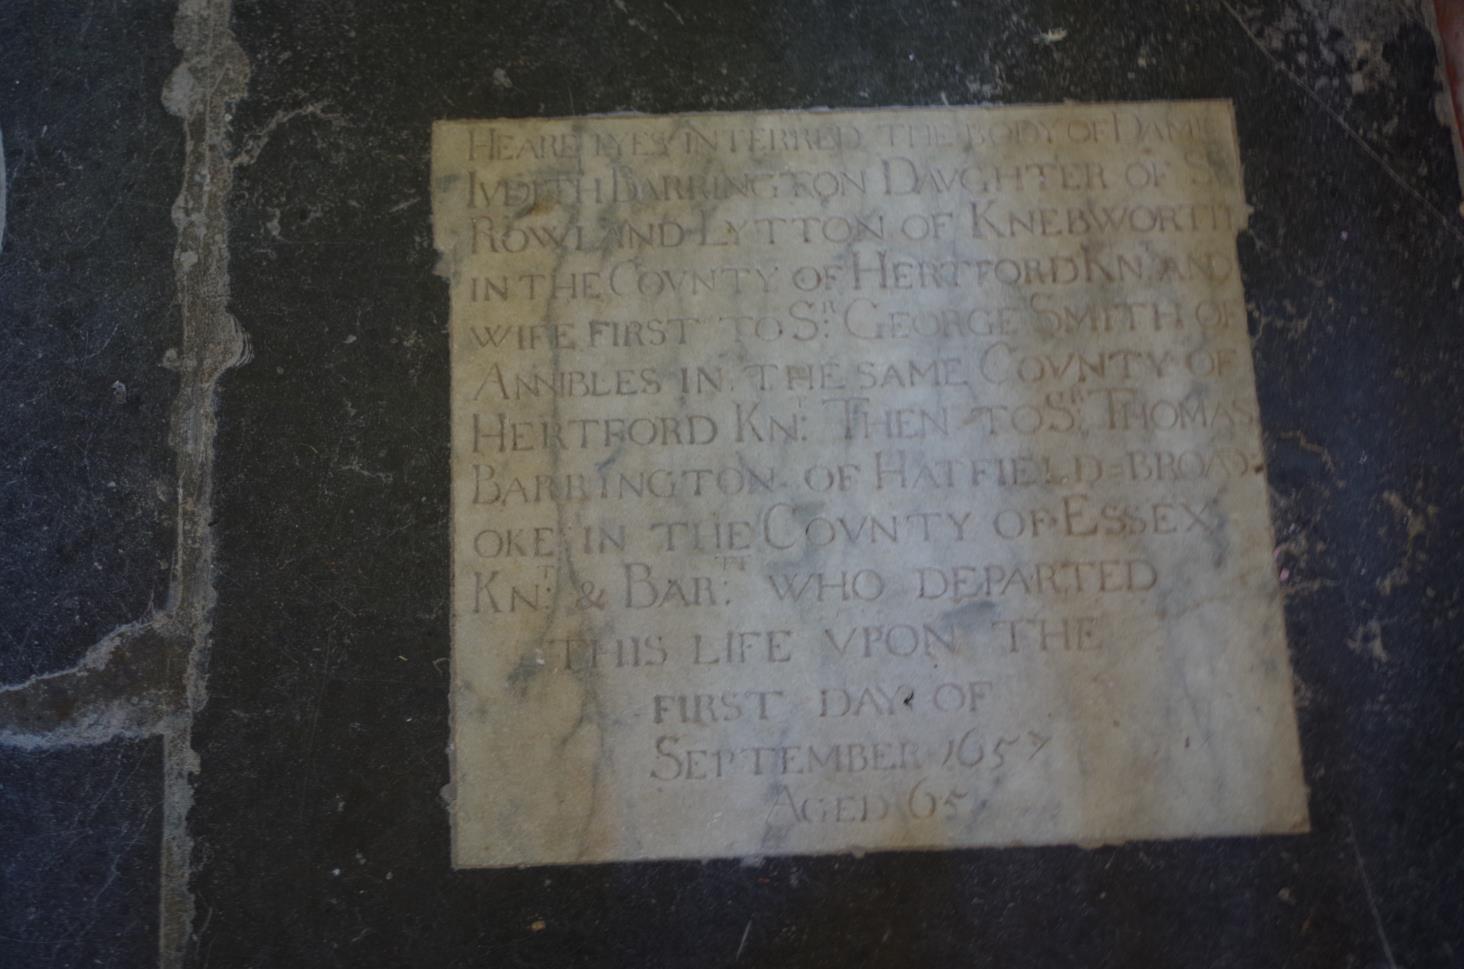 HEARE LYES INTERRED THE BODY OF DAME
IVDETH BARRINGTON DAVGHTER OF Sʀ
ROWLAND LYTTON OF KNEBWORTH
IN THE COVNTY OF HERTFORD KNᵀ AND
WIFE FIRST TO Sʀ: GEORGE SMITH OF
ANNIBLES IN THE SAME COVNTY OF
HERTFORD KNᵀ: THEN TO Sʀ: THOMAS
BARRINGTON OF HATFIELD=BROAD=
OKE IN THE COVNTY OF ESSEX
KNᵀ: & BARᵀᵀ: WHO DEPARTED
THIS LIFE VPON THE
FIRST DAY OF
SEPTEMBER 1657
AGED 65